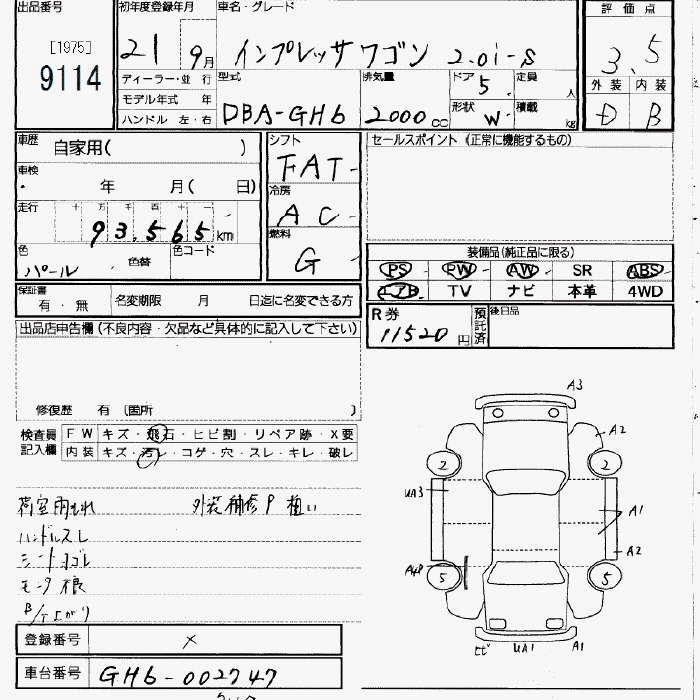 出品番号
[1975]
9114
初年度登録年月
21 9月
車名・グレード
インプレッサワゴン 2.0i-S
評価点
3.5
外装 内装
D B
ディーラー・並行
モデル年式 年
ハンドル 左・右
型式
DBA-GH6
排気量
2000cc
ドア
5
形状
W
定員
人
積載
kg
車歴
自家用( )
車検
年 月( 日)
走行
十 万 千 百 十 一
93,565km
色
パール
色替
色コード
シフト
FAT
冷房
AC
燃料
G
セールスポイント (正常に機能するもの)
装備品(純正品に限る)
PS PW AW SR ABS
エアB TV ナビ 本革 4WD
保証書
有・無
名変期限 月 日迄に名変できる方
R券
11520円
預託済
後日品
出品店申告欄 (不良内容・欠品など具体的に記入して下さい)
修復歴 有 (箇所 )
検査員記入欄
FW キズ・飛石・ヒビ割・リペア跡・X要
内装 キズ・汚レ・コゲ・穴・スレ・キレ・破レ
荷室雨もれ 外装補修P粗い
ハンドルスレ
シートヨゴレ
登録番号 ×
車台番号 GH6-002747
A3
A2
2
2
UA3
A1
A2
5
5
UA1
A1